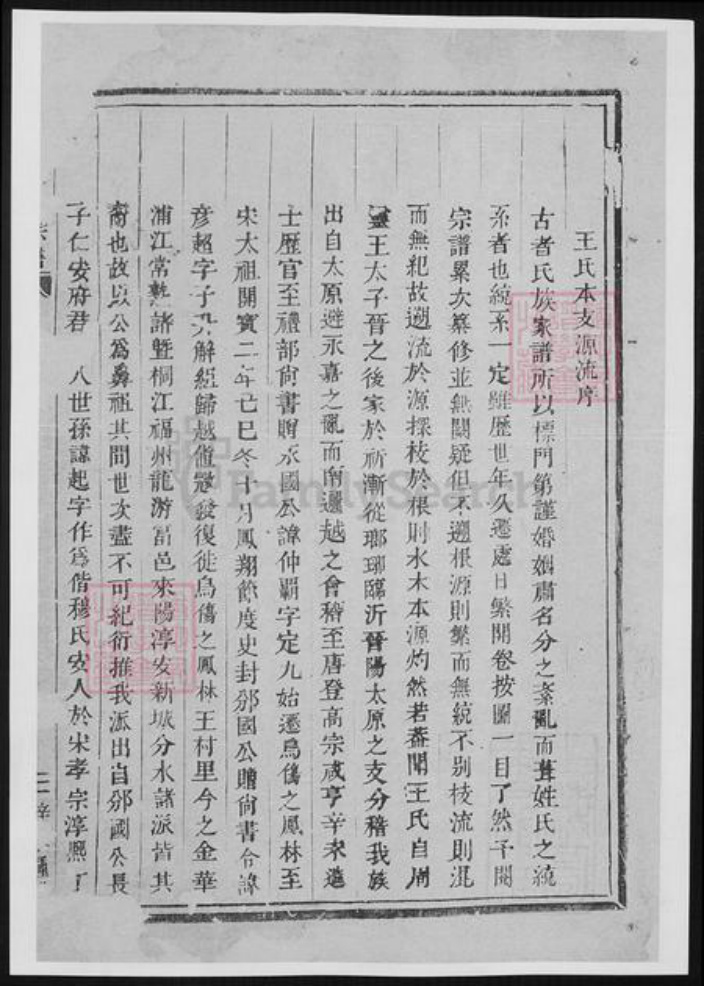 王氏本支源流序
古者氏族家譜所以標門第謹婚姻肅名分之紊亂而葺姓氏之統
系者也統系一定雖歷世年久遷處日繁開卷按圖一目了然予閱
宗譜累次纂修並無闕疑但不遡根源則繁而無統不別枝流則混
而無紀故遡流於源探枝於根則水木本源灼然若蓍聞王氏自周
靈王太子晉之後家於祈漸從瑯琊臨沂晉陽太原之支分稽我族
出自太原避永嘉之亂而南遷越之會稽至唐登高宗咸亨辛未進
士歷官至禮部尚書贈永國公諱仲覇字定九始遷烏傷之鳳林至
宋太祖開寶二年己巳冬十月鳳翔節度史封邠國公贈尚書令諱
彦超字子 解組歸越 復徙烏傷之鳳林王村里今之金華
浦江常 諸暨桐江福州龍游富邑來陽淳安新城分水諸派皆其
裔也故以公為鼻祖其間世次盡不可紀衍推我派出自邠國公長
子仁安府君 八世孫諱起字作 偕穆氏安人於宋孝宗淳熙丁
FamilySearch